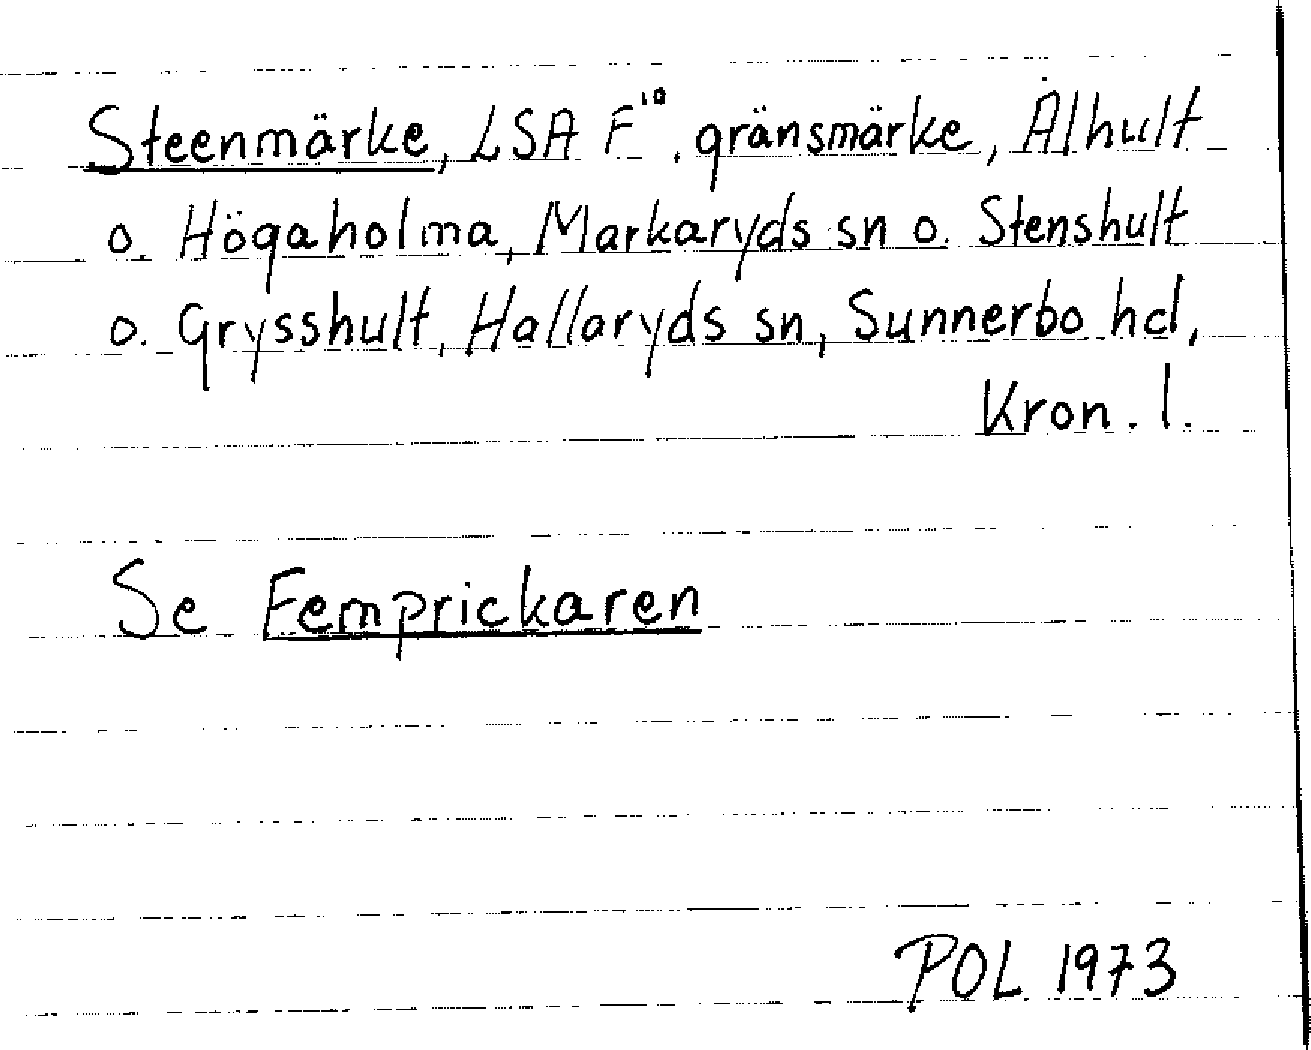 Steenmärke, LSA F¹⁰. gränsmärke, Älhult
o. Högaholma, Markaryds sn o. Stenshult
o. Grysshult, Hallaryds sn, Sunnerbo hd,
Kron. l.
Se Femprickaren
POL 1973